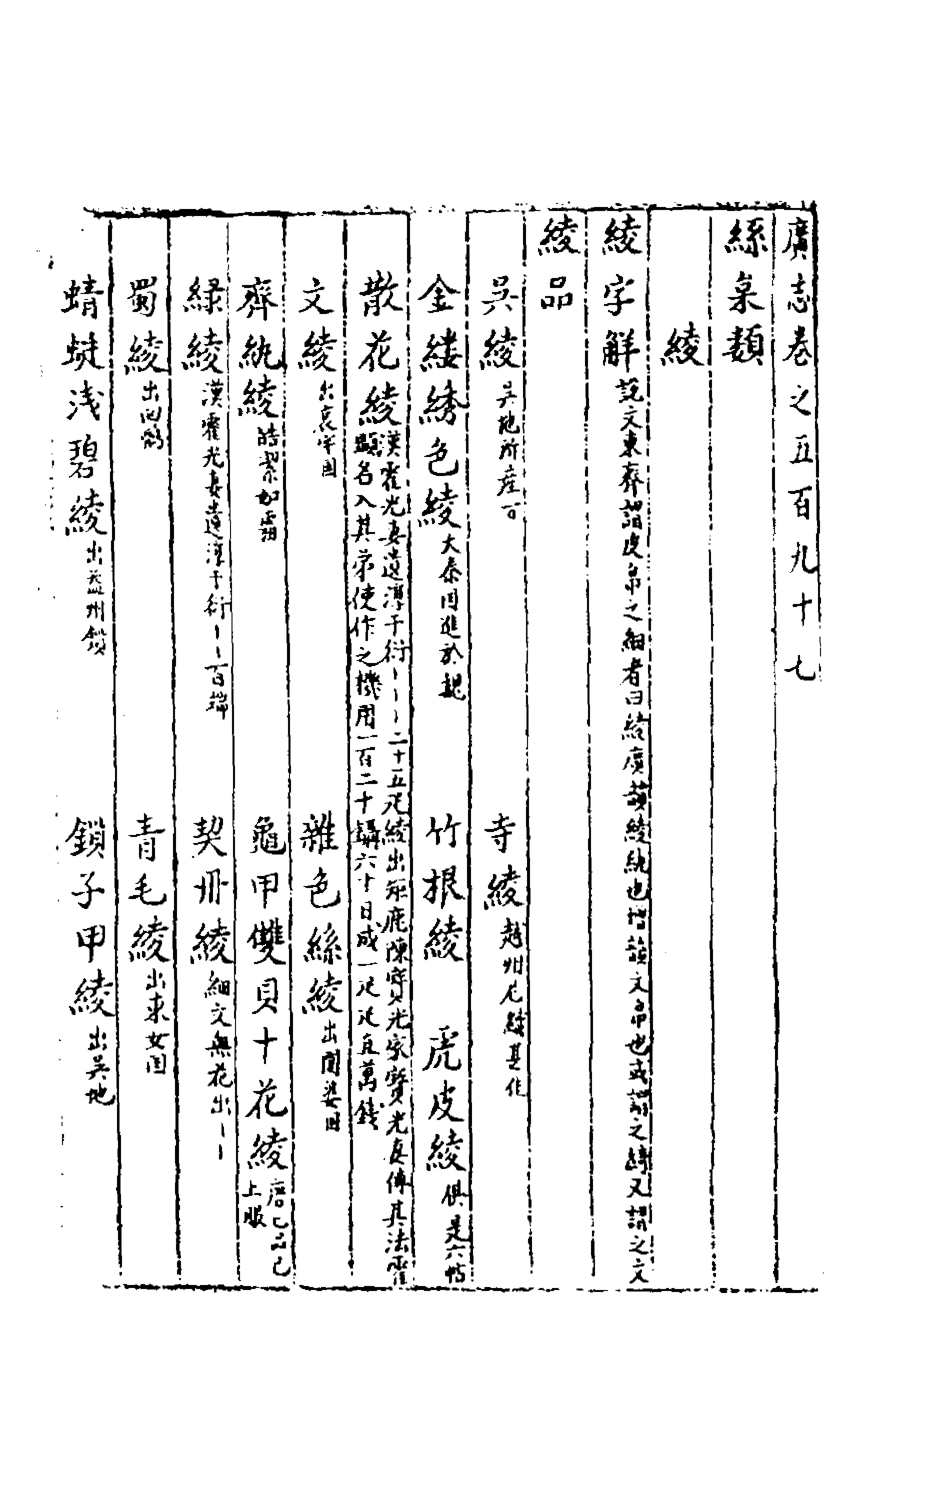 廣志卷之五百九十七
絲枲類
綾
綾字解 說文東齊謂皮帛之細者曰綾廣韻綾紈也增韻文帛也或謂之綺又謂之文
綾品
吳綾 吳地所産 寺綾 越州尼綾甚佳
金縷綉色綾 大秦囯進於魏 竹根綾 虎皮綾 俱是六
散花綾 漢霍光妻遺淳于衍〻〻〻二十五疋綾出鉅鹿陳寶光家寶光妻傳其法霍
顯名入其弟使作之機用一百二十鑷六十日成一疋疋直萬錢
文綾 出哀牢囯 雜色絲綾 出闍婆囯
齊紈綾 皓潔如霜 龜甲雙貝十花綾 唐七品已
上服
緑綾 漢霍光妻遺淳于衍〻〻百端 契丹綾 細文無花出〻〻
蜀綾 出回鶻 青毛綾 出東女囯
蜻蜓浅碧綾 出益州鎖 鎖子甲綾 出吳地